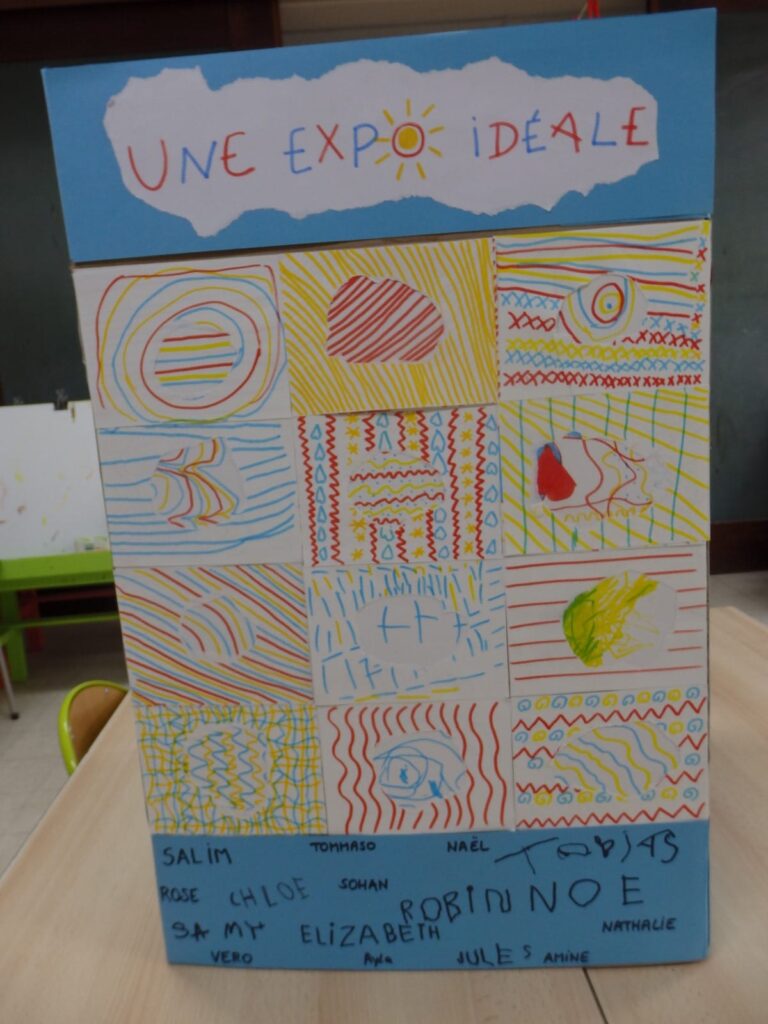 UNE EXPO IDÉALE
SALIM TOMMASO NAËL TOBIAS
ROSE CHLOE SOHAN ROBIN NOE
SAMY ELIZABETH NATHALIE
VERO Ayla JULES AMINE